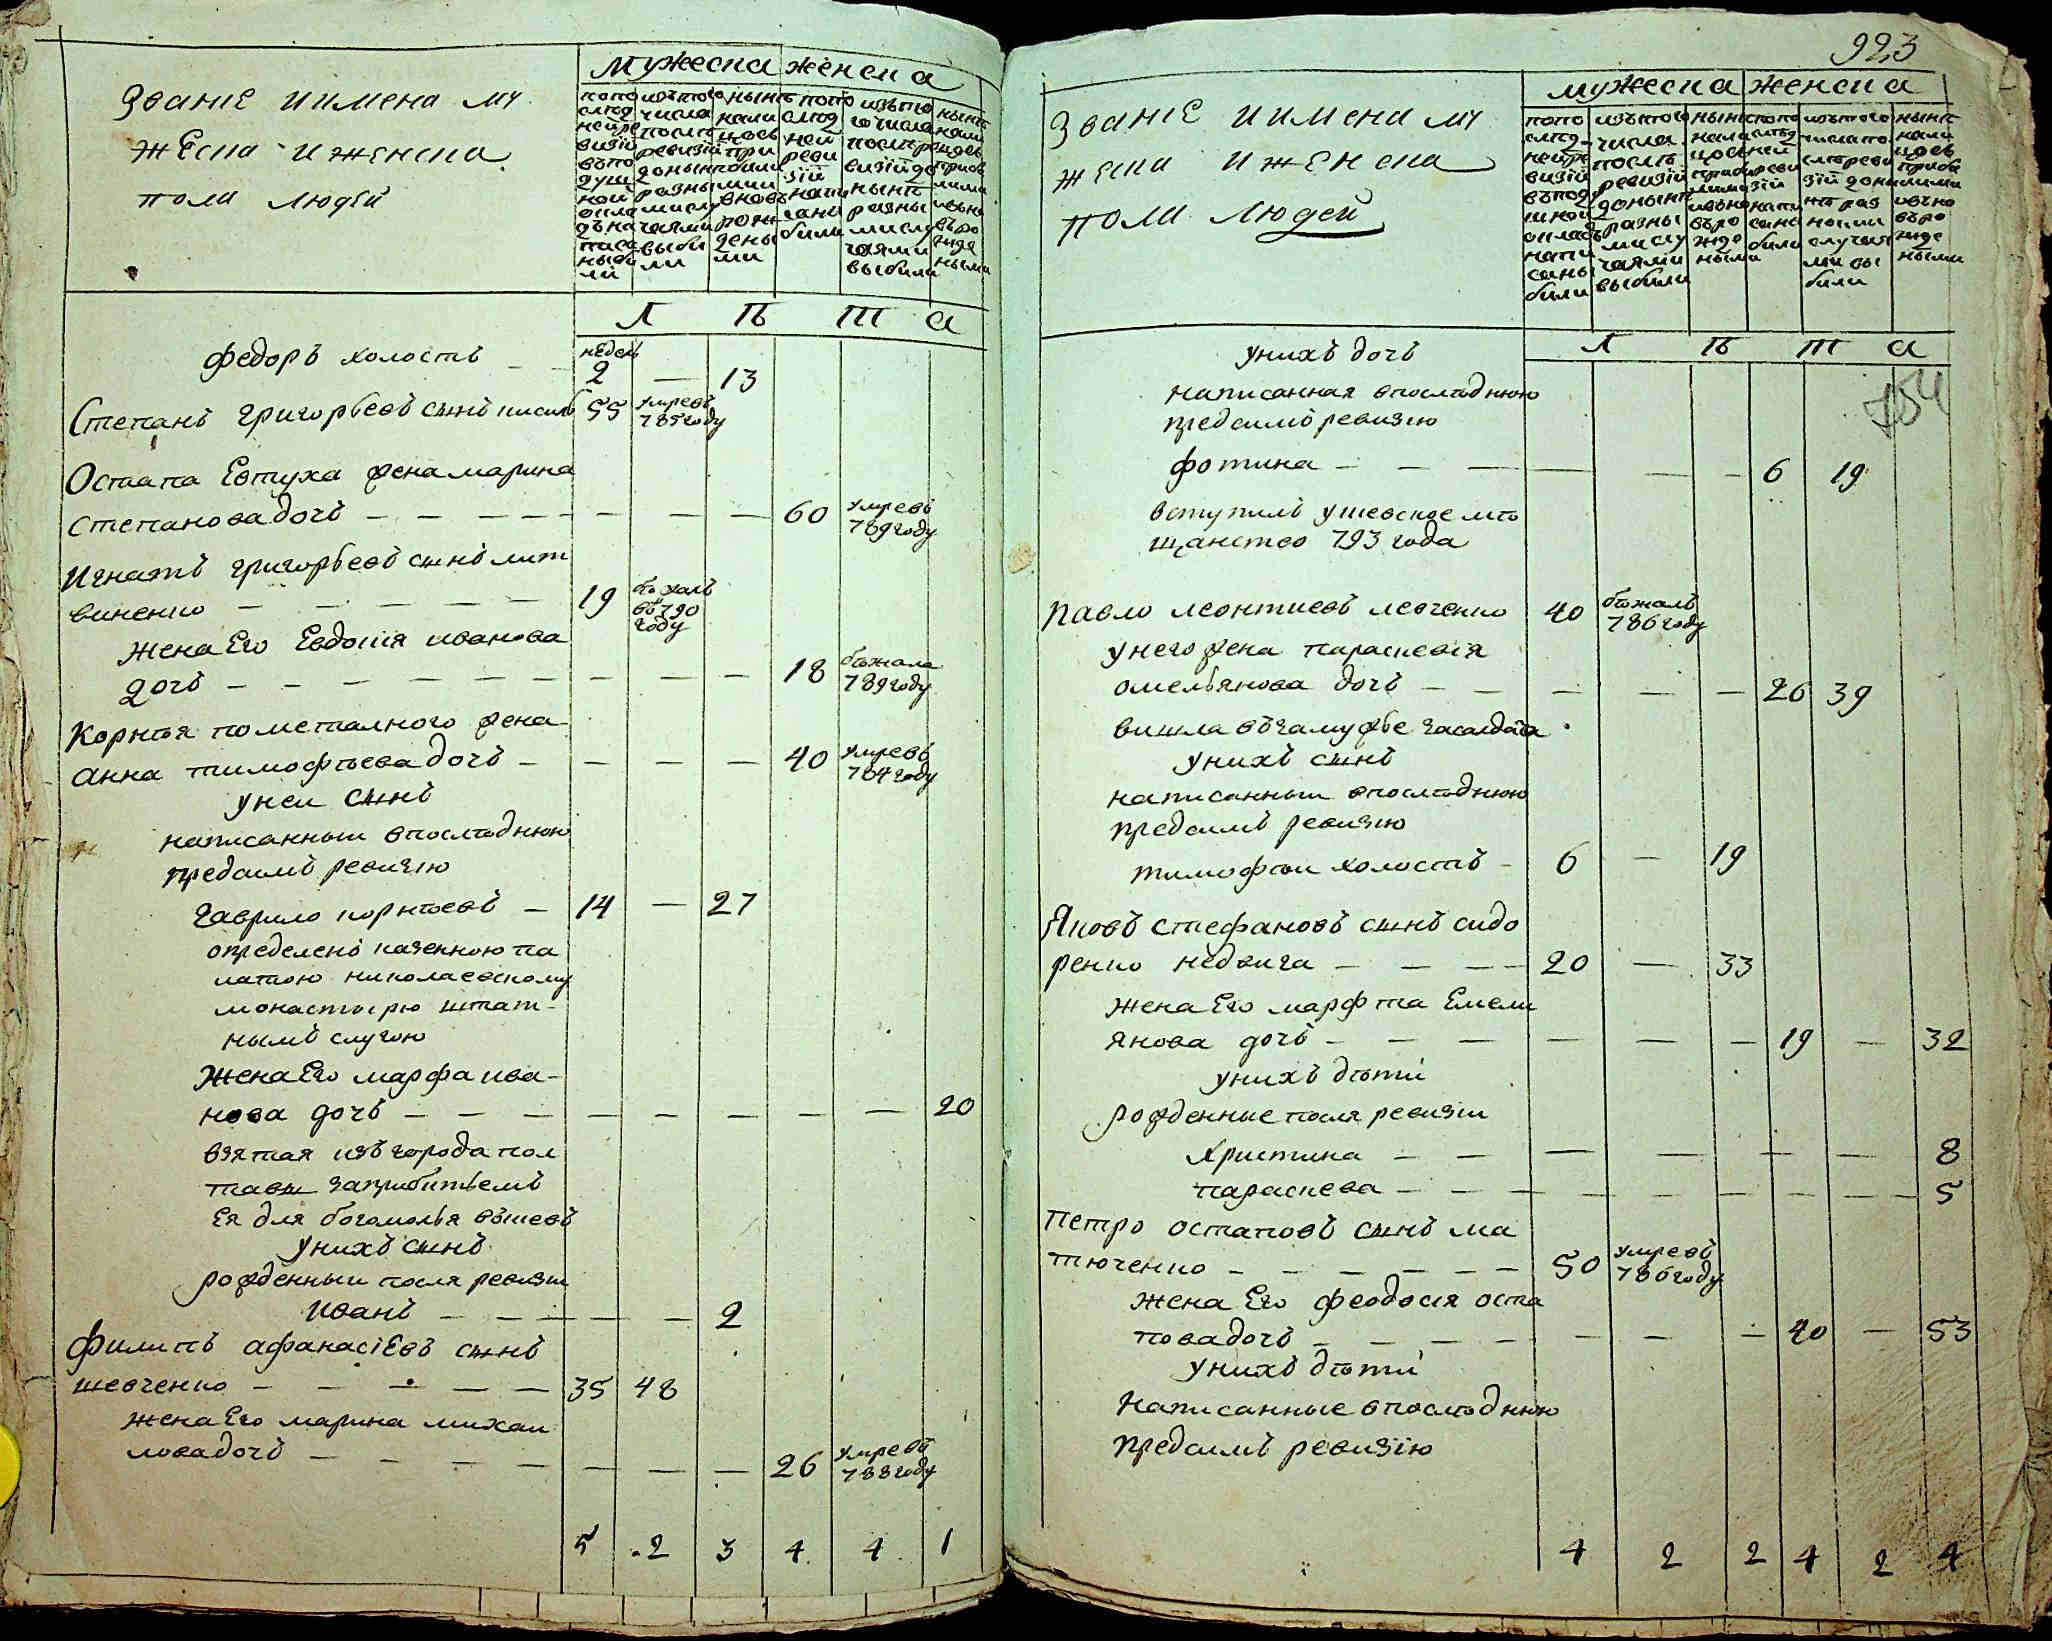 Званіе иимена му
жеска иженска
пола людей
мужеска женска
попо
след
ней ре
визіи
въпо
душ
ной
окла
дъна
писа
ныбы
ли
изътого
числа
послѣ
ревизіи
донынѣ
разны
мислу
чаями
выбы
ли
нынѣ
нали
цось
при
былы
ми
вновь
рож
дены
ми
попо
след
ней
реви
зіи
напи
саны
были
изъто
го числа
послѣре
визіи до
нынѣ
разны
мислу
чаями
выбыли
нынѣ
нали
цось
прибы
лими
ивъно
въро
жде
ными
Л Ѣ Т А
федоръ холостъ — — недель 2 — 13
Степанъ григорьевъ сынъ кисиль 55 умревъ 785 году
Остапа Евтуха жена марина
степанова дочь — — — — — — — — 60 умревъ 789 году
Игнатъ григорьевъ сынъ лит
виненко — — — — — 19 бѣжалъ въ 790 году
жена Его Евдокія иванова
дочь — — — — — — — — — 18 бѣжала 789 году
Корнѣя пометалного жена
анна тимофѣева дочь — — — — 40 умревъ 784 году
унеи сынъ
написанныи впослѣднюю
предсимъ ревизію
гаврило корнѣевъ — 14 — 27
определенъ казенною па
латою николаевскому
монастырю штат-
нымъ слугою
жена Его марфа ива-
нова дочь — — — — — — — — 20
взятая изъ города пол
тавы заприбытьемъ
Ея для богомолья въкиевъ
унихъ сынъ
рожденныи после ревизіи
иванъ — — — — — 2
филипъ афанасіевъ сынъ
шевченко — — — — — 35 48
жена Его марина михаи
лова дочь — — — — — — — — 26 умревъ 788 году
5 2 3 4 4 1
923
Званіе иимена му
жеска иженска
пола людей
мужеска женска
попо
след-
ней ре
визіи
въпод
шной
окладъ
напи
саны
были
изътого
числа
послѣ
ревизіи
донынѣ
разны
мислу
чаями
выбыли
нынѣ
нали
цось
прибы
лими
ивъно
въро
жде
ными
попо
слѣд
ней
реви
зіи
напи
сане
были
изътого
числапо
слѣреви
зіи доны
нѣ раз
ными
случая
ми вы
были
нынѣ
нали
цось
прибы
лими
ивъно
въро
жде
ными
Л Ѣ Т А
унихъ дочь
написанная впослѣднюю
предсимъ ревизію
фотина — — — — — — 6 19
154
вступилъ укиевское мѣ
щанство 793 года
Павло леонтиевъ левченко 40 бѣжалъ 786 году
унего жена параскевія
омельянова дочь — — — — — 26 39
вишла въ замужье засолдата
унихъ сынъ
написанныи впослѣднюю
предсимъ ревизію
тимофѣи холостъ — 6 — 19
Яковъ стефановъ сынъ сидо
ренко недвига — — — — 20 — 33
жена Его марфѣа Емели
янова дочь — — — — — — 19 — 32
унихъ дѣти
рожденные после ревизіи
христина — — — — — — 8
параскева — — — — — — — — — 5
Петро остаповъ сынъ ма
тюченко — — — — — — 50 умревъ 786 году
жена Его феодосія оста
пова дочь — — — — — — — 40 — 53
унихъ дѣти
написанные впослѣднюю
предсимъ ревизію
4 2 2 4 2 4